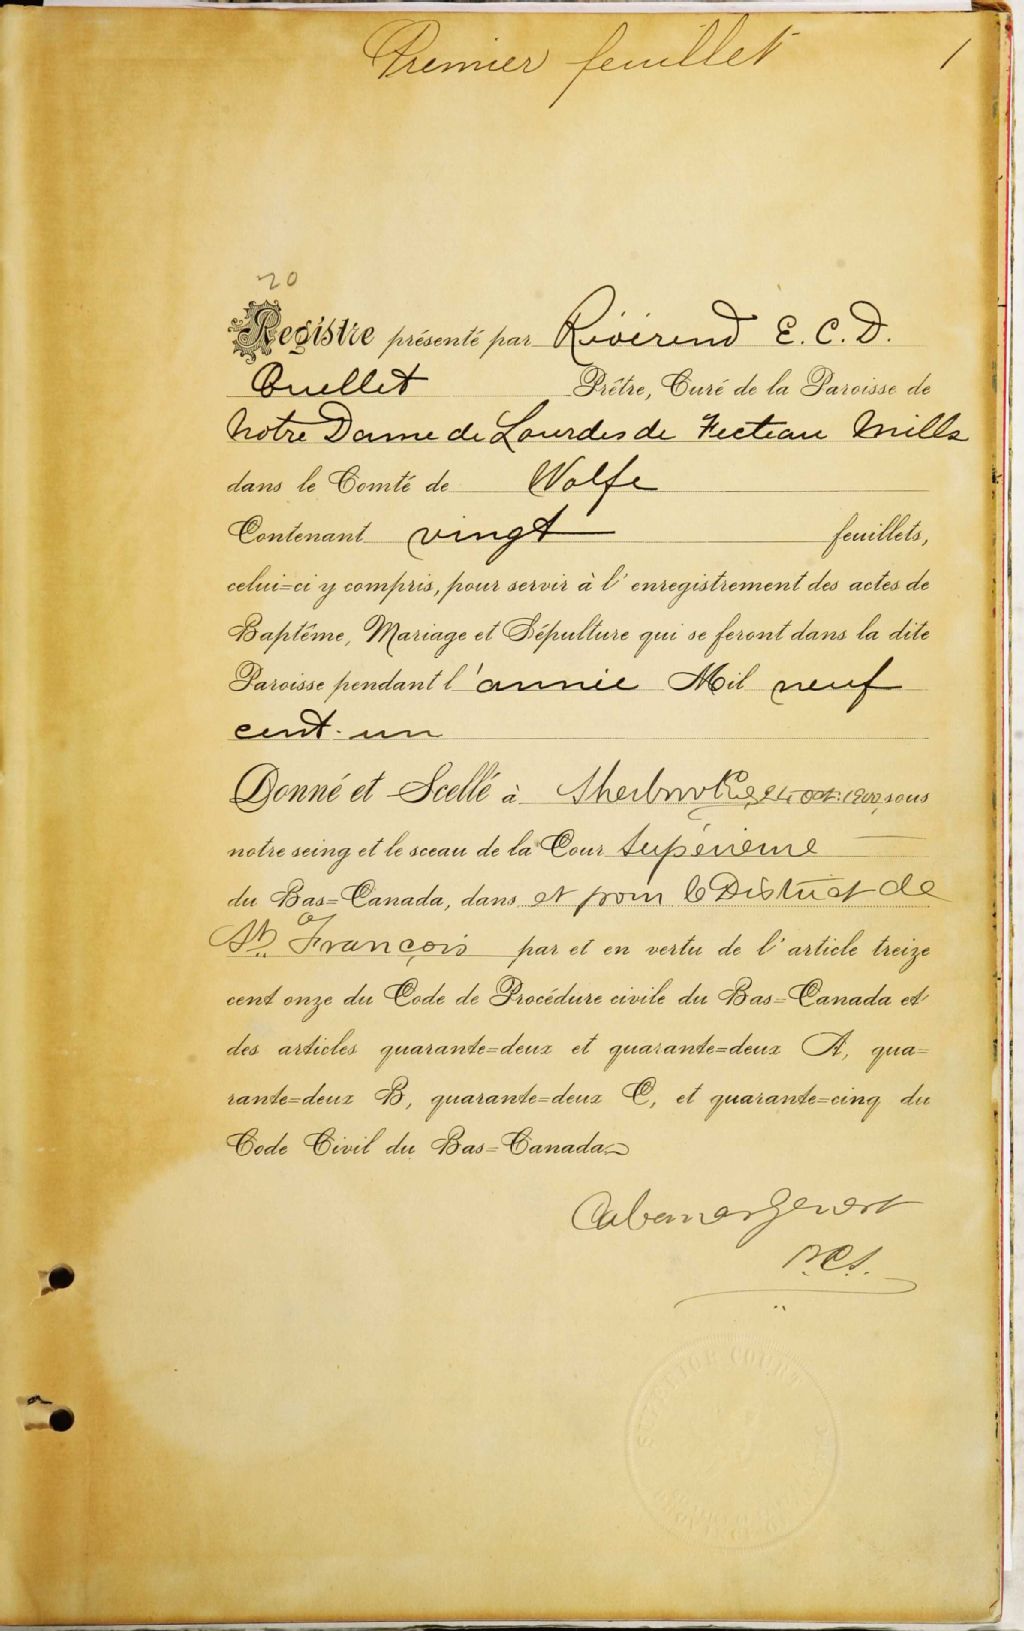 Premier feuillet 1
20
Registre présenté par Révérend E. C. D.
Ouellet Prêtre, Curé de la Paroisse de
Notre Dame de Lourdes de Fecteau Mills
dans le Comté de Wolfe
Contenant vingt feuillets,
celui=ci y compris, pour servir à l'enregistrement des actes de
Baptême, Mariage et Sépulture qui se feront dans la dite
Paroisse pendant l'année Mil neuf
cent-un
Donné et Scellé à Sherbrooke, 24 Oct. 1900, sous
notre seing et le sceau de la Cour Supérieure
du Bas=Canada, dans et pour le District de
St. François par et en vertu de l'article treize
cent onze du Code de Procédure civile du Bas=Canada et
des articles quarante=deux et quarante=deux A, qua=
rante=deux B, quarante=deux C, et quarante=cinq du
Code Civil du Bas=Canada.
P.C.S.
SUPERIOR COURT